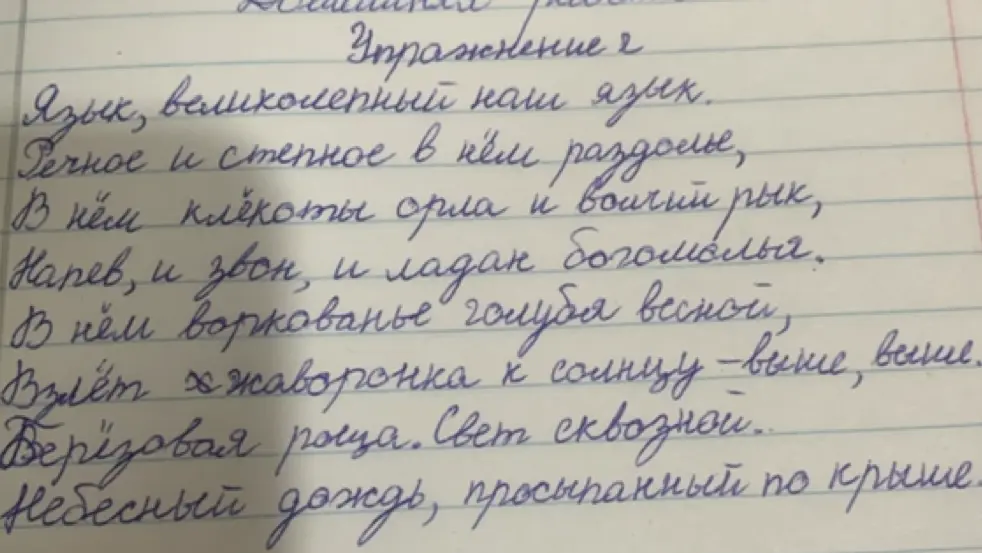 Домашняя работа
Упражнение 2
Язык, великолепный наш язык.
Речное и степное в нём раздолье,
В нём клёкоты орла и волчий рык,
Напев, и звон, и ладан богомолья.
В нём воркованье голубя весной,
Взлёт жаворонка к солнцу – выше, выше.
Берёзовая роща. Свет сквозной.
Небесный дождь, просыпанный по крыше.